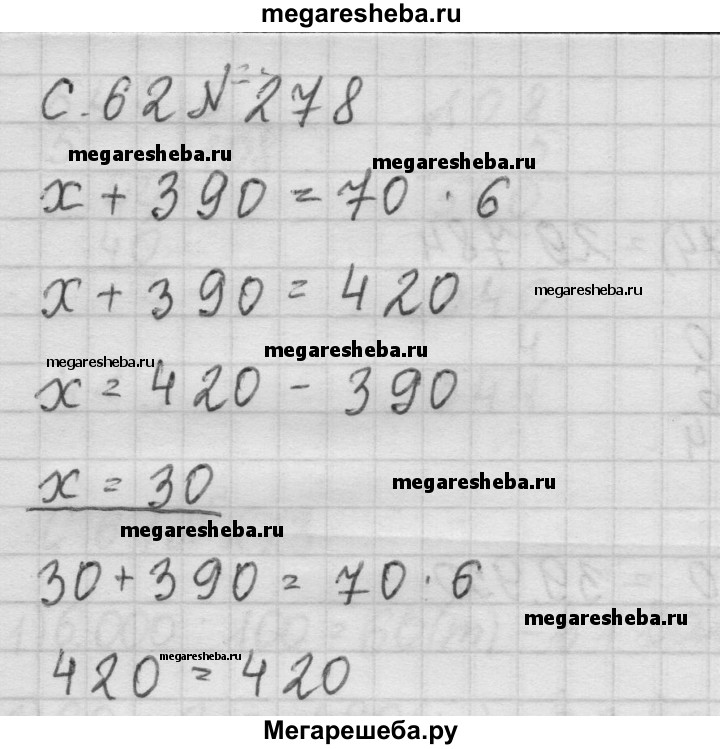 megaresheba.ru
с. 62 № 278
megaresheba.ru megaresheba.ru
x + 390 = 70 · 6
x + 390 = 420 megaresheba.ru
megaresheba.ru megaresheba.ru
x = 420 - 390
x = 30 megaresheba.ru
megaresheba.ru
30 + 390 = 70 · 6
megaresheba.ru
420 = 420 megaresheba.ru
Мегарешеба.ру